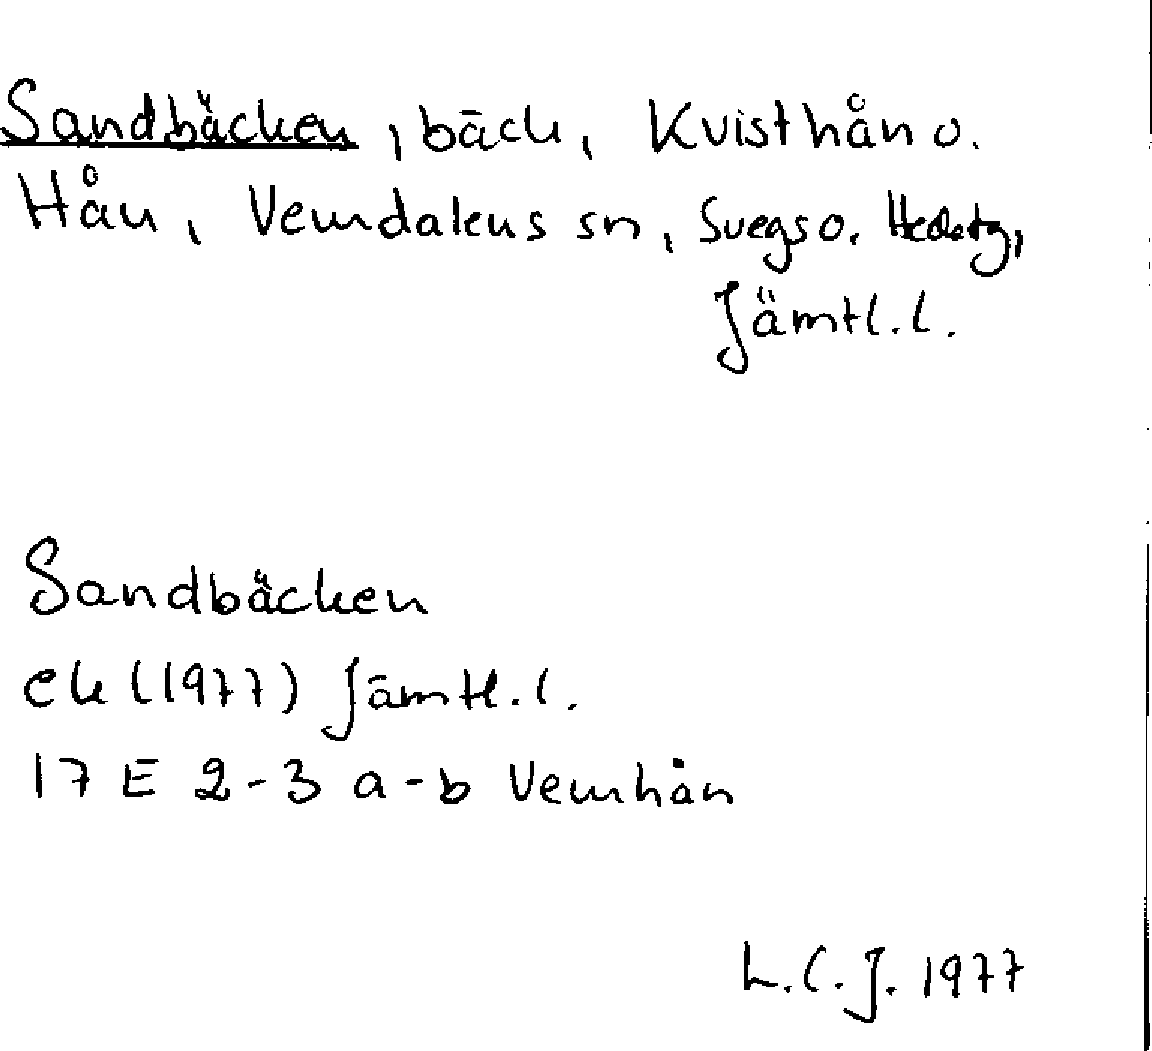 Sandbäcken, bäck, Kvisthån o.
Hån, Vemdalens sn, Svegs o.
Jämtl. l.
Sandbäcken
ek (1977) Jämtl. l.
17 E 2-3 a-b Vemhån
L.C.J. 1977